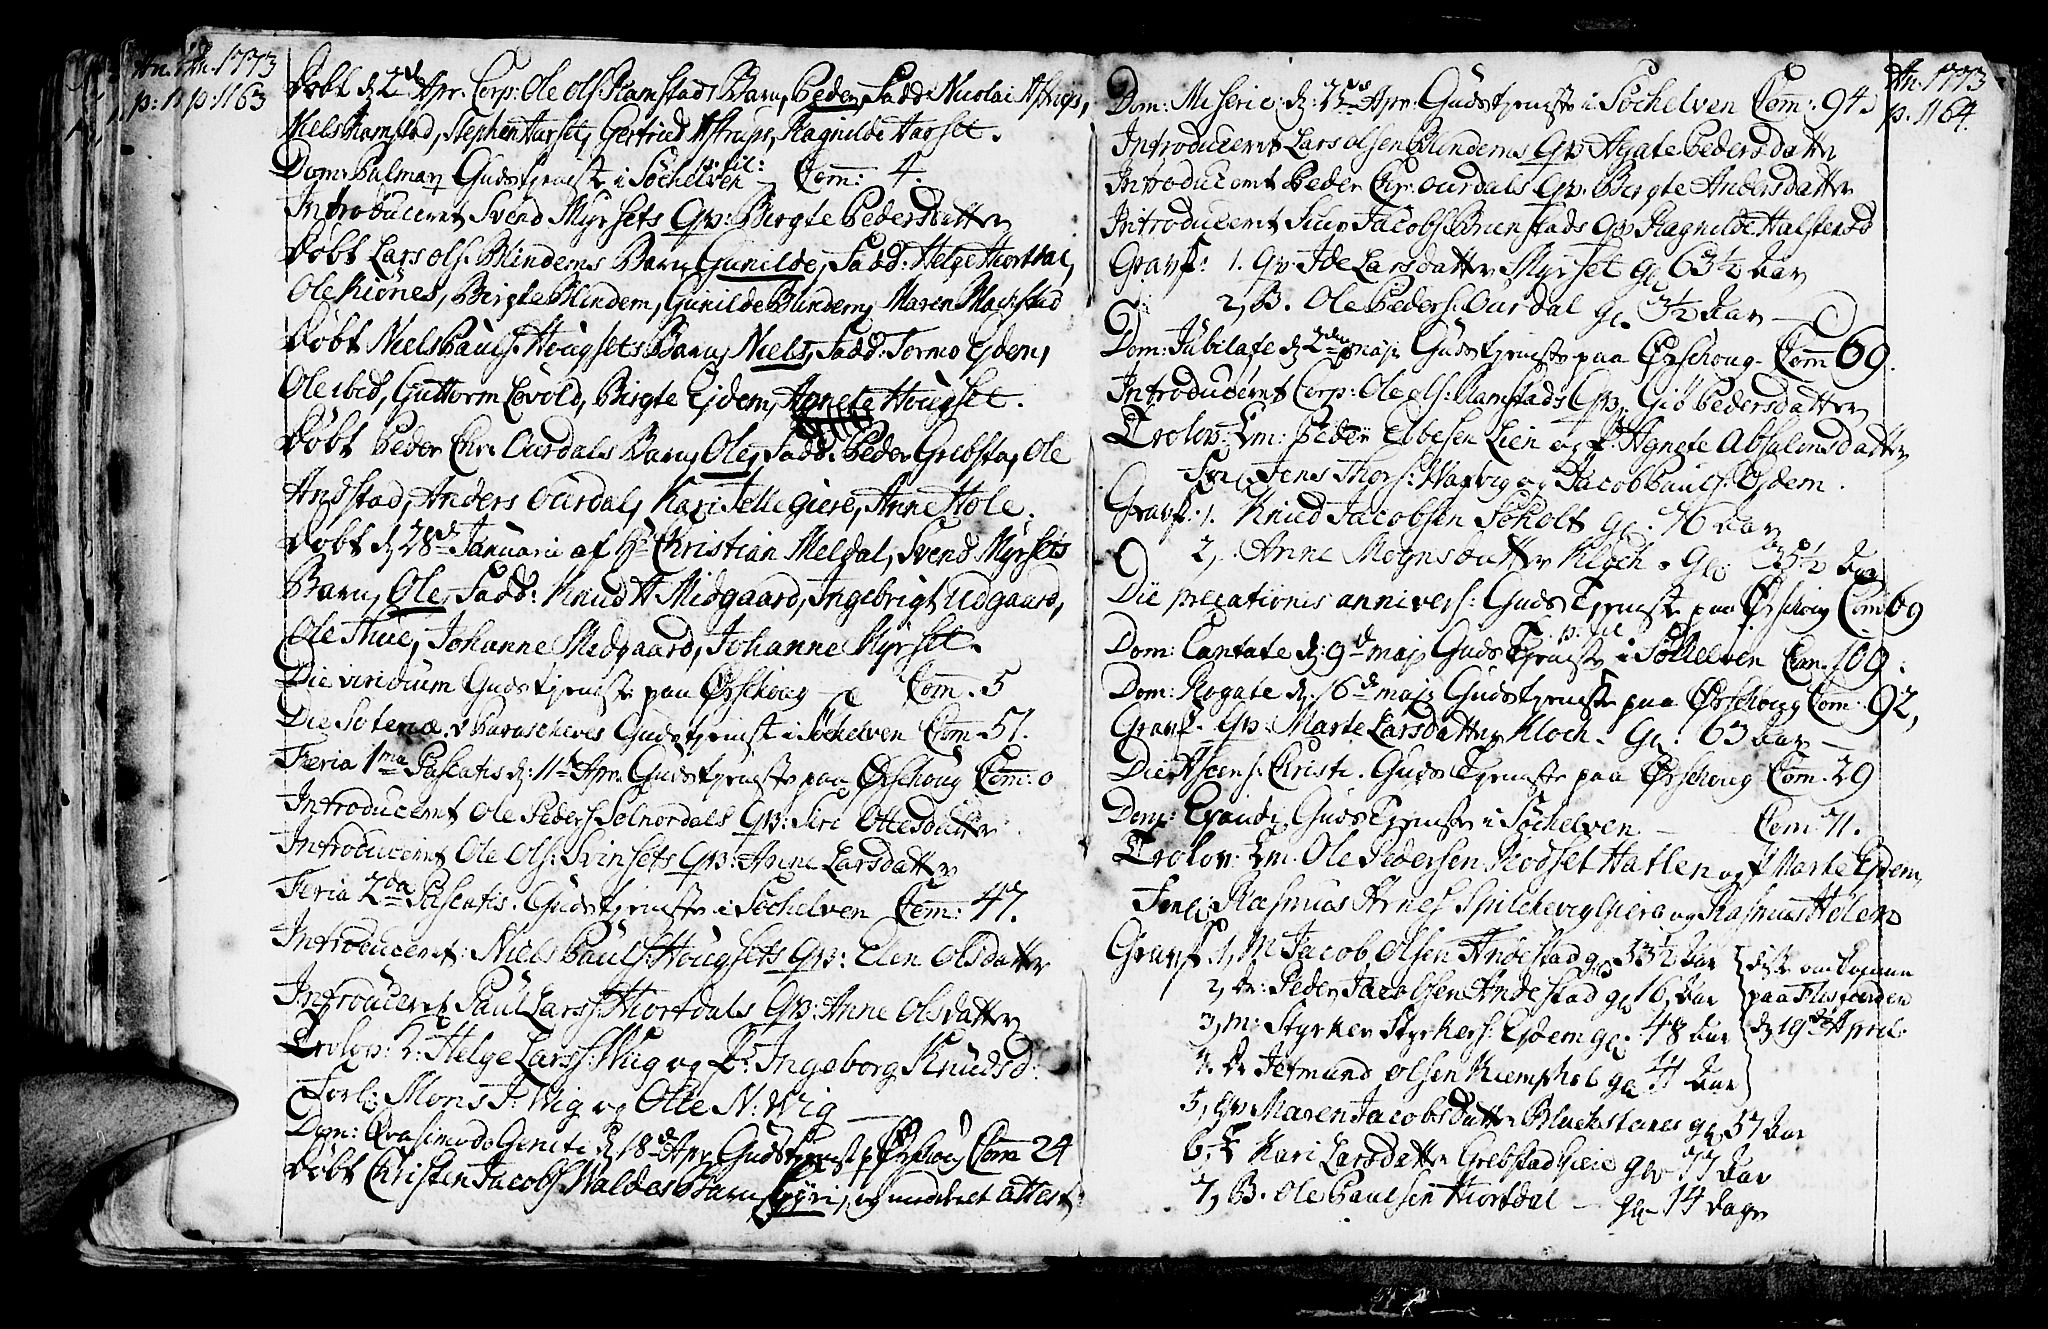 An. 1773
p: 1163
Døbt d 2d Apr. Corp: Ole Ols: Ramstads Barn, Peder, Fadd: Nicolai Astrups,
Niels Ramstad, Stephen Aarset, Gertrud Astrups, Ragnilde Aarset.
Dom: Palmar Gudstjeneste i Søchelven Com: 4.
Introduceret Svend Myrsets Qv: Birgte Pedersdatter
Døbt Lars Ols: Blindems Barn Gunilde, Fadd: Helge Hiortdal,
Ole Riönes, Birgte Blindem, Gunilde Blindem, Maren Blachstad
Døbt Niels Pauls: Hougsets Barn, Niels, Fadd: Tormo Ejdem,
Ole ibid, Guttorm Lövold, Birgte Ejdem, Agnete Hougset.
Døbt Peder Chr. Aurdals Barn, Ole, Fadd: Peder Grebstad, Ole
Andstad, Anders Aurdal, Kari Tellegiere, Anne Hole.
Døbt d 28d Januarii af Hr Christian Meldal, Svend Myrsets
Barn, Ole, Fadd: Knud H Midgaard, Ingebrigt Udgaard,
Ole Thue, Johanne Midgaard, Johanne Myrset.
Die viridium Gudstjeneste paa Ørschoug Com. 5
Die Soteriæ v Parascheves Gudstjenest i Søchelven Com. 51.
Feria 1ma Paschatis d: 11te Apr. Gudstjeneste paa Ørschoug Com: 0
Introduceret Ole Peders: Solnordals Qv: Siri Ottesdatter
Introduceret Ole Ols: Svinsets Qv: Anne Larsdatter
Feria 2da Paschatis. Gudstjeneste i Søchelven Com: 47.
Introduceret: Niels Pauls: Hougsets Qv: Elen Olsdatter
Introduceret Paul Lars: Hiortdals Qv: Anne Olsdatter
Trolov: Helge Larss: Wiig og P: Ingeborg Knudsd:
Forl: Mons J: Wiig og Olle N: Wig
Dom: Qvasimodo Geniti d 18d Apr. Gudstjenest p Ørschoug Com 24
Døbt Christen Jacobs: Waldes Barn Gyri, og meddeelt attest
An. 1773
p. 1164.
Dom: Miseric: d: 25de Apr. Gudstjeneste i Søchelven Com: 94.
Introduceret Lars Olsen Blindems Qv: Agate Pedersdatter
Introduceret Peder Chr: Aurdals Qv: Birgte Andersdatter
Introduceret Siur Jacobs: Bunstads Qv Ragnilde Halstensd
Grafv: 1. Qv: Ide Larsdatter Myrset gl 63½ Aar
2, B. Ole Peders: Aurdal gl. 3½ Aar
Dom: Jubilate d 2den Maji Gudstjeneste paa Ørschoug Com 69.
Introduceret Corp: Ole Ols: Ramstads Qv: Giö Pedersdatter
Trolov: Em: Peder Ebbesen Lien og P: Agnete Absalonsdatter
Forl: Jens Thors: Warvig og Jacob Pauls: Ejdem.
Grafv: 1. Knud Jacobsen Soholt gl: 76 Aar
2, Anne Mognsdatter Kloch gl: 35½ Aar
Die precationis annivers: Gudstjeneste paa Ørschoug Com 69
Dom: Cantate d: 9d Maji Gudstjeneste i Søchelven Com. 109.
Dom: Rogate d. 16d Maji Gudstjeneste paa Ørschoug Com: 92,
Grafv: Qv: Marte Larsdatter Kloch. gl: 63 Aar
Die Ascens: Christi. Gudstjeneste paa Ørschoug Com. 29
Dom: Exaudi Gudstjeneste i Søchelven Com: 71.
Trolov: Em. Ole Pedersen Rodset Hatlen og P Marte Ejdem,
Forl: Rasmus Arnes: Spilchevig giere og Rasmus Holem
Grafv: 1, M Jacob Olsen Andestad gl 53½ Aar
2, Dr: Peder Jacobsen Andestad gl 16, Aar
3, M: Styrker Styrkers: Ejdem gl: 48 Aar
disse omkomne
paa Flisfoergen
d 19de April.
4. Dr Jetmund Olsen Kiemphol gl 14 Aar
5, Qv: Maren Jacobsdatter Blachstenes gl 57 Aar
6. E Kari Larsdatter Grebstadgiere gl: 77 Aar
7, B. Ole Paulsen Hiortdal gl 14 Dage